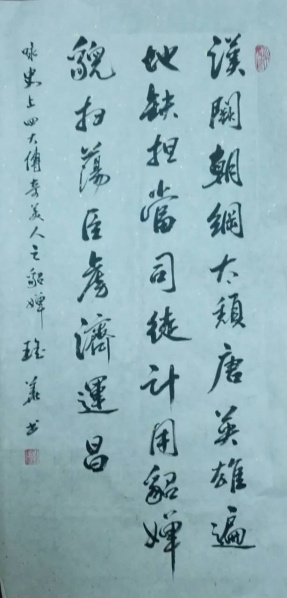 漢闕朝綱太頹唐英雄遍
地缺担當司徒計用貂蟬
貌扫蕩臣濟運昌
咏史上四大傳奇美人之貂蟬 书